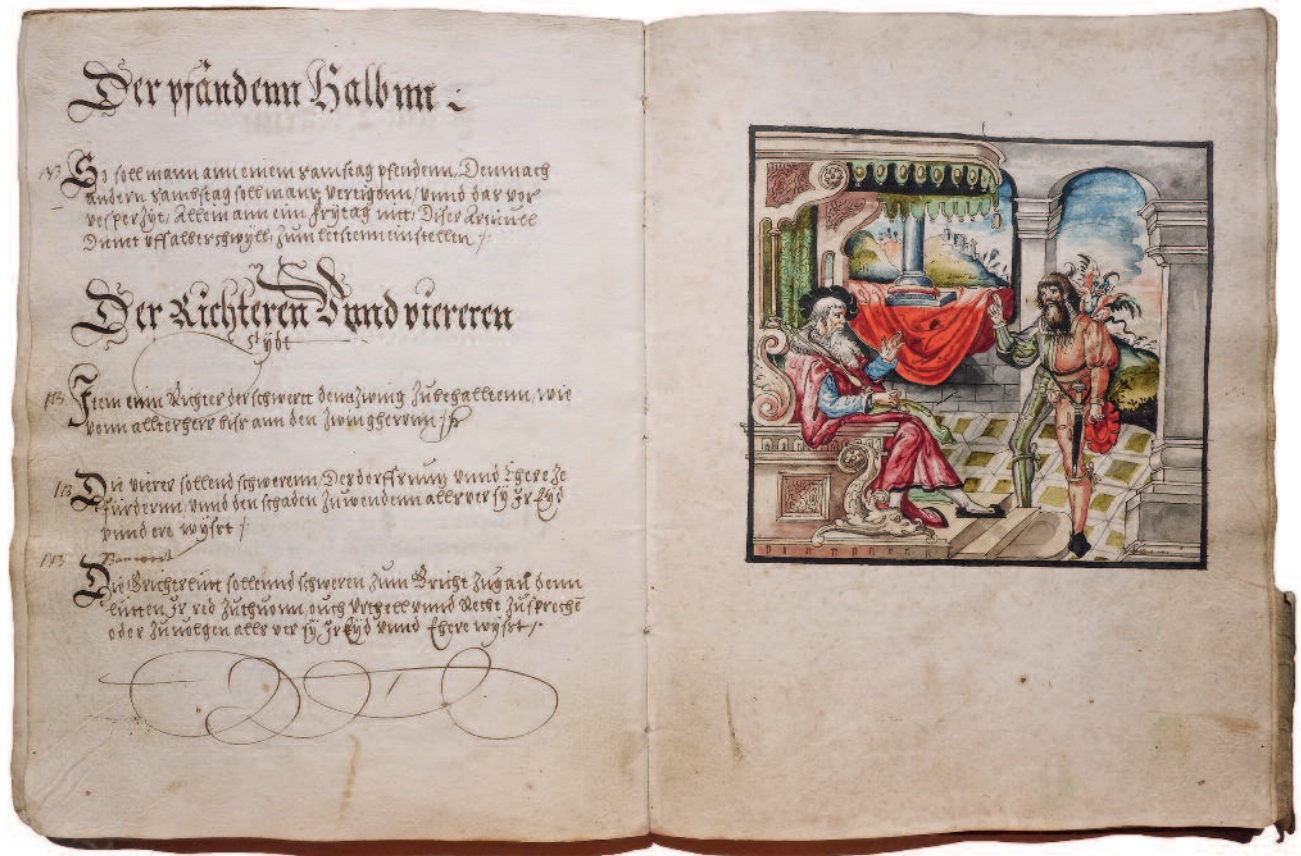 Der pfändenn Halb nn :
So soll mann ann einem samstag pfendenn, Dennnach
andern sambstag soll mans vertigonn, vnnd das vor
vesper Zyt, Allein ann eim frytag nitt, Diser Articull
Dienet vff alberschwyll, Zum letstenn einstellen /
Der Richteren Vnnd viereren
Eydt
Item einn Richter der schwert denn Zwing Zubehalltenn, wie
vonn allterhero biss ann den Zwingherrnn /
Die vierer sollend schwerenn, Der derffer nutz vnnd Ehere Ze
fürdernn, vnnd den schaden Zuwendenn alls ver sy Jr Eyd
vnnd ere wysst /
Die Grichtslüt sollennd schweren Zum Gricht Zugan denn
lütten Jr red Zuthuonn, ouch Vrthell vnnd Recht Zusprechen
oder Zuvolgen alls ver sy Jr Eyd vnnd Ehere wysst /